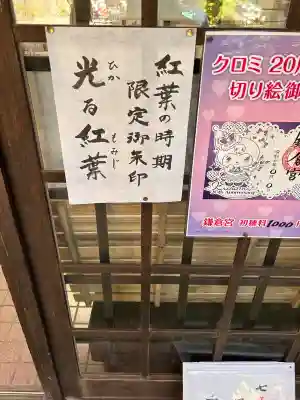 紅葉の時期
限定御朱印
光る紅葉
ひか
もみじ
クロミ 20周
切り絵御
鎌倉宮 初穂料1000